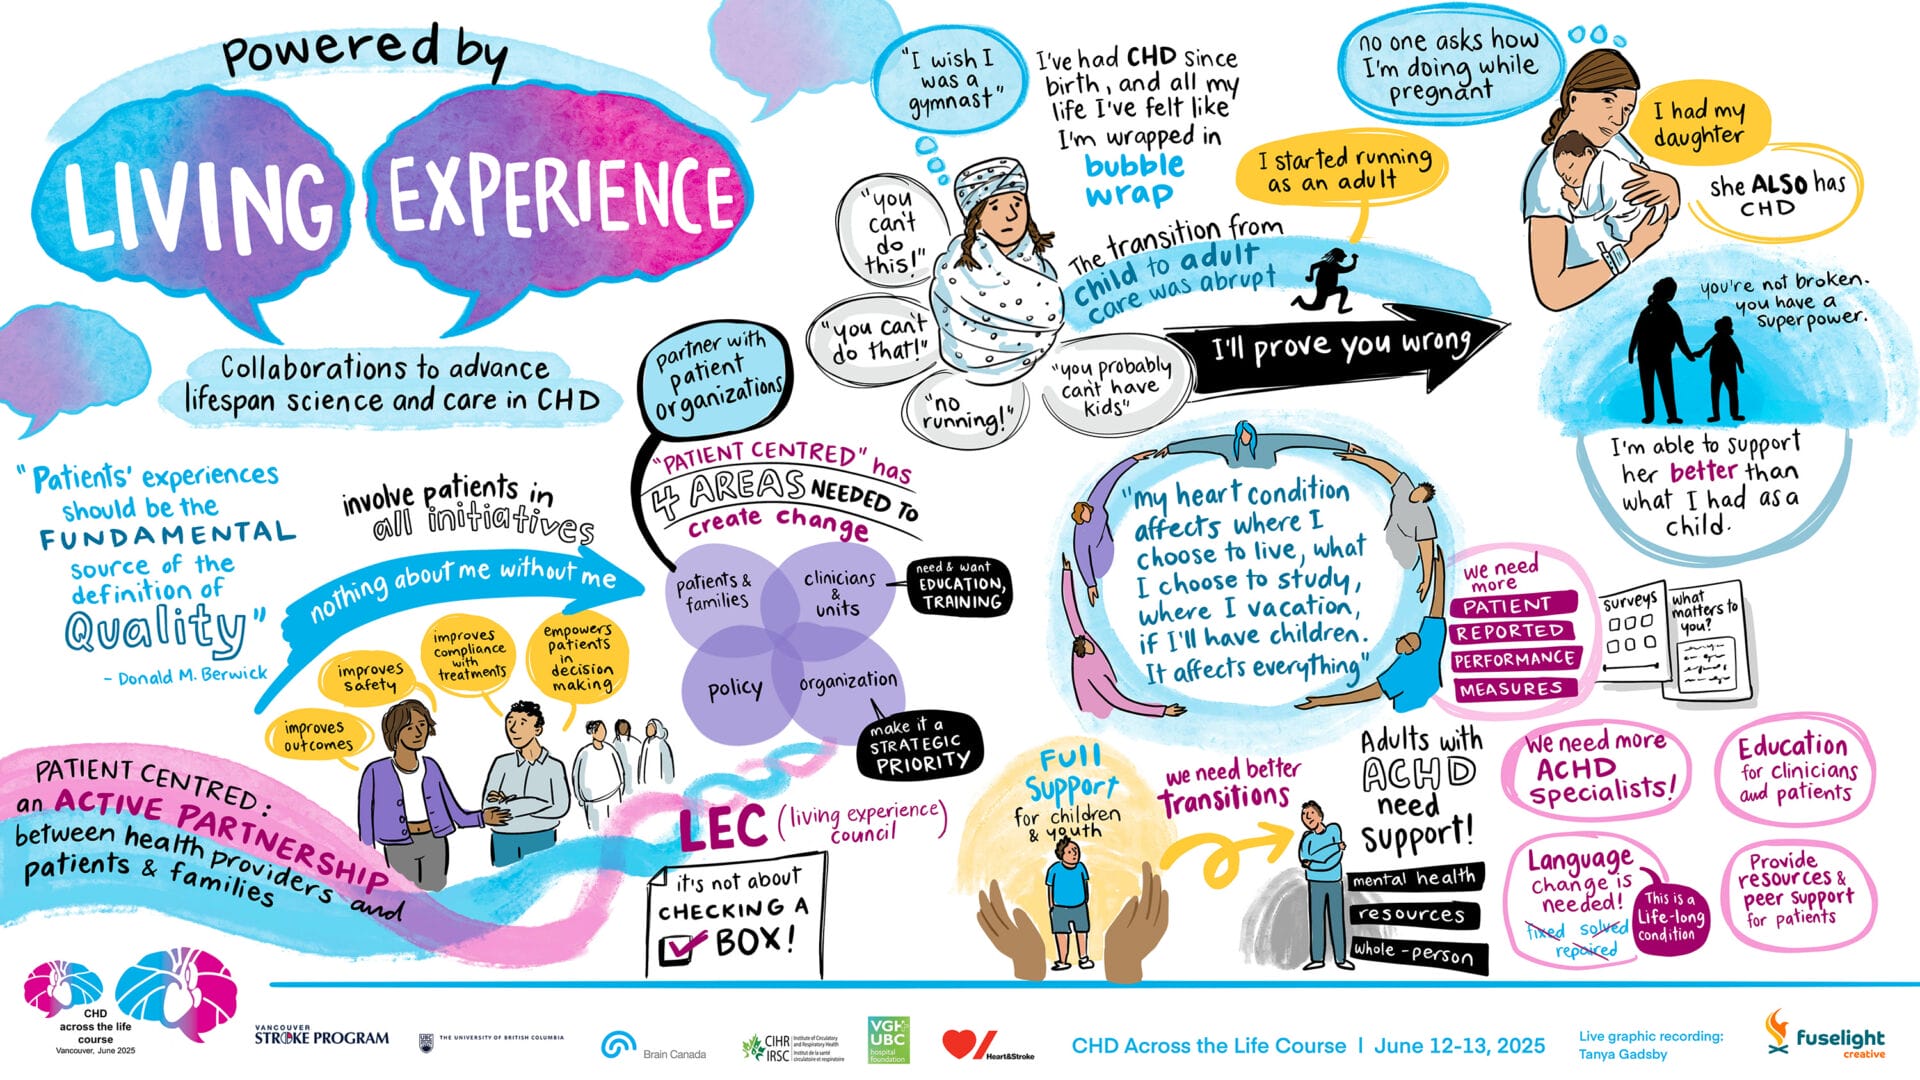 Powered by
LIVING EXPERIENCE
Collaborations to advance
lifespan science and care in CHD
"Patients' experiences
should be the
FUNDAMENTAL
source of the
definition of
Quality"
- Donald M. Berwick
involve patients in
all initiatives
nothing about me without me
improves
outcomes
improves
safety
improves
compliance
with
treatments
empowers
patients
in
decision
making
PATIENT CENTRED:
an ACTIVE PARTNERSHIP
between health providers and
patients & families
partner with
patient
organizations
"PATIENT CENTRED" has
4 AREAS NEEDED TO
create change
patients &
families
clinicians
&
units
policy
organization
need & want
EDUCATION,
TRAINING
make it a
STRATEGIC
PRIORITY
LEC (living experience
council)
it's not about
CHECKING A
BOX!
"I wish I
was a
gymnast"
I've had CHD since
birth, and all my
life I've felt like
I'm wrapped in
bubble
wrap
"you
can't
do
this!"
"you can't
do that!"
"no
running!"
"you probably
can't have
kids"
The transition from
child to adult
care was abrupt
I started running
as an adult
I'll prove you wrong
no one asks how
I'm doing while
pregnant
I had my
daughter
she ALSO has
CHD
you're not broken.
you have a
superpower.
I'm able to support
her better than
what I had as a
child.
"my heart condition
affects where I
choose to live, what
I choose to study,
where I vacation,
if I'll have children.
It affects everything"
we need
more
PATIENT
REPORTED
PERFORMANCE
MEASURES
surveys
what
matters to
you?
Full
Support
for children
& youth
we need better
transitions
Adults with
ACHD
need
support!
mental health
resources
whole-person
We need more
ACHD
specialists!
Education
for clinicians
and patients
Language
change is
needed!
fixed solved
repaired
This is a
Life-long
condition
Provide
resources &
peer support
for patients
CHD
across the life
course
Vancouver, June 2025
VANCOUVER
STROKE PROGRAM
UBC
THE UNIVERSITY OF BRITISH COLUMBIA
Brain Canada
CIHR
IRSC
Institute of Circulatory
and Respiratory Health
Institut de la santé
circulatoire et respiratoire
VGH
UBC
hospital
foundation
Heart&Stroke
CHD Across the Life Course | June 12-13, 2025
Live graphic recording:
Tanya Gadsby
fuselight
creative